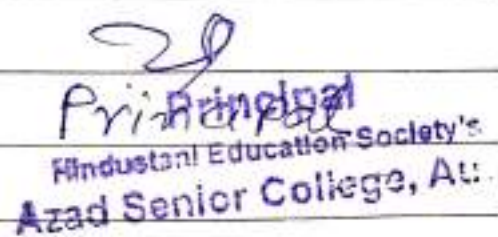 Principal
Principal
Hindustani Education Society's
Azad Senior College,